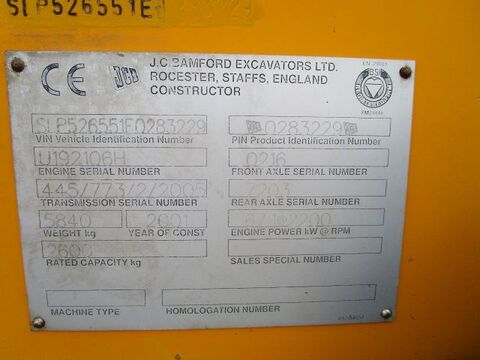 SLP526551E0283229
J.C.BAMFORD EXCAVATORS LTD.
ROCESTER, STAFFS, ENGLAND
CONSTRUCTOR
CE
JCB
BSI
SLP526551E0283229
VIN Vehicle Identification Number
0283229
PIN Product Identification Number
U192106H
ENGINE SERIAL NUMBER
0216
FRONT AXLE SERIAL NUMBER
445/773/2/2005
TRANSMISSION SERIAL NUMBER
7203
REAR AXLE SERIAL NUMBER
5840
WEIGHT kg
2001
YEAR OF CONST
2200
ENGINE POWER kW @ RPM
2600
RATED CAPACITY kg
SALES SPECIAL NUMBER
MACHINE TYPE
HOMOLOGATION NUMBER